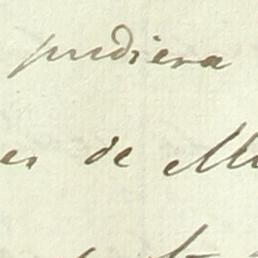 pudiera
es de Mu